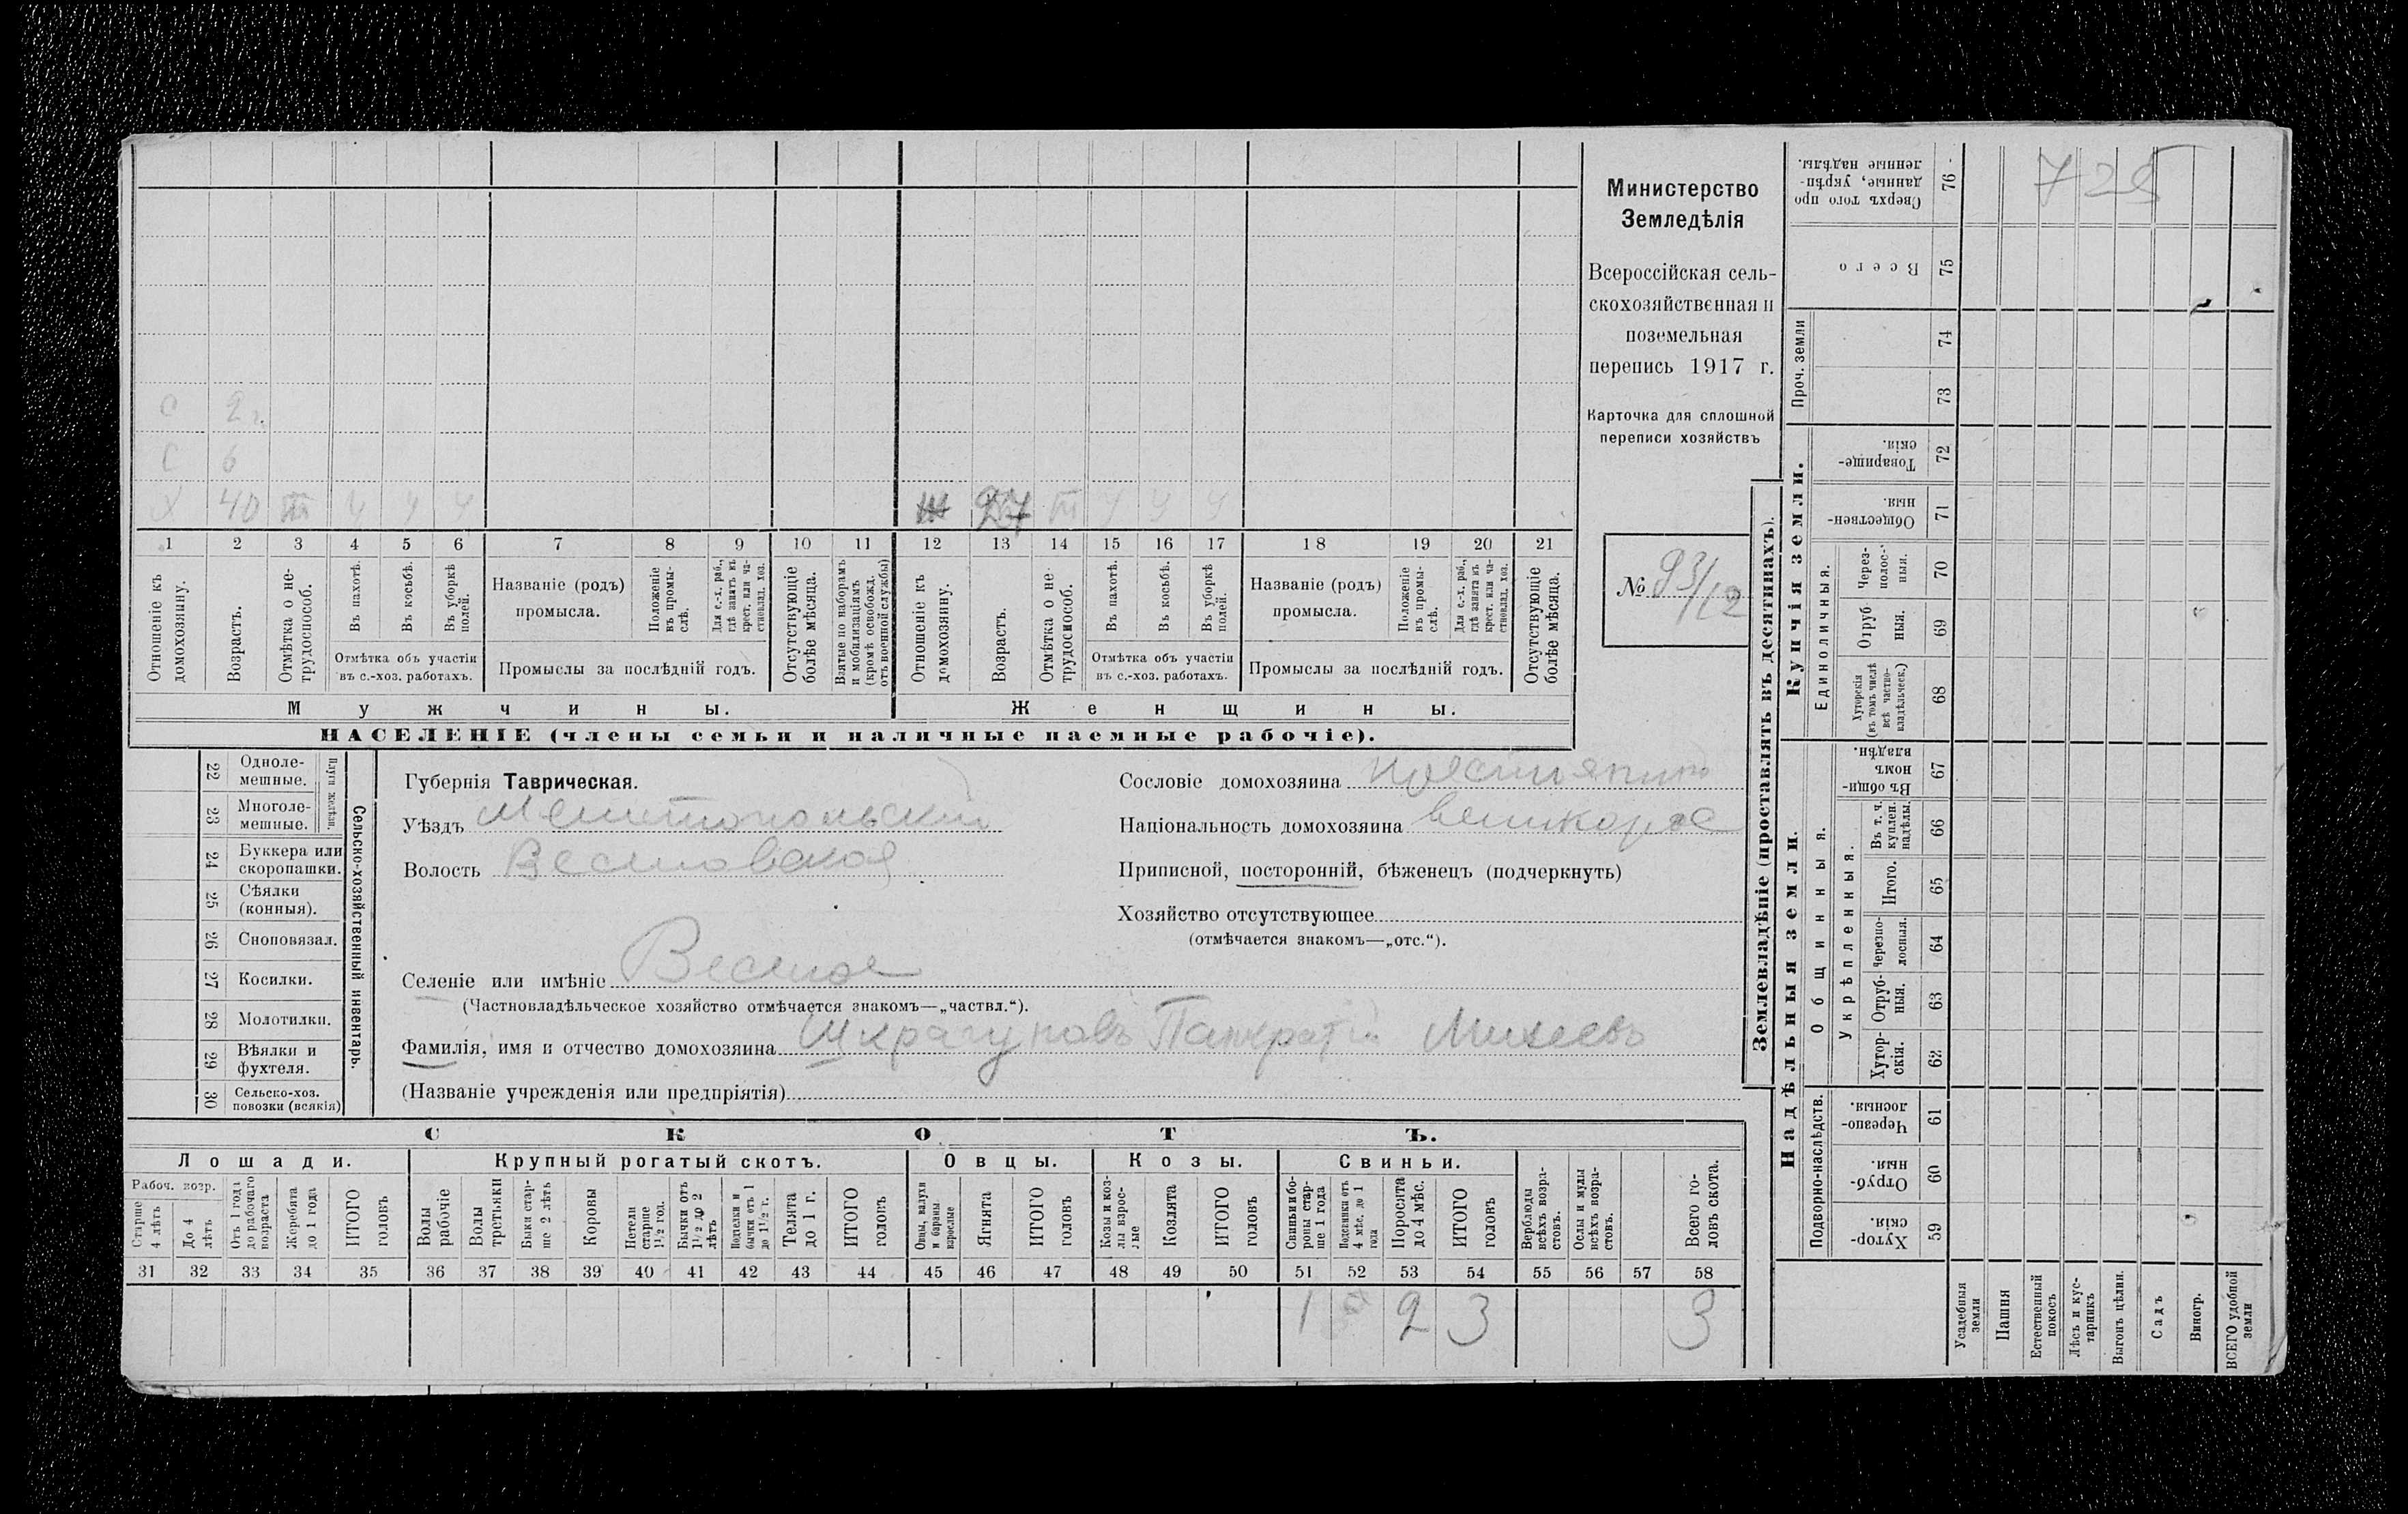 Министерство
Земледѣлія
Всероссійская сель-
скохозяйственная и
поземельная
перепись 1917 г.
Карточка для сплошной
переписи хозяйствъ
№ 93/12
725
С 2 г.
С 6
Х 40 т у у у
ж 27 т у у у
1 2 3 4 5 6 7 8 9 10 11 12 13 14 15 16 17 18 19 20 21
Отношеніе къ домохозяину.
Возрастъ.
Отмѣтка о не-трудоспособ.
Въ пахотѣ.
Въ косьбѣ.
Въ уборкѣ полей.
Отмѣтка объ участіи
въ с.-хоз. работахъ.
Названіе (родъ)
промысла.
Положеніе въ промы-слѣ.
Для с.-х. раб., гдѣ занятъ въ крест. или ча-стновлад. хоз.
Промыслы за послѣдній годъ.
Отсутствующіе болѣе мѣсяца.
Взятые по наборамъ и мобилизаціямъ (кромѣ освобожд. отъ военной службы)
Отношеніе къ домохозяину.
Возрастъ.
Отмѣтка о не-трудоспособ.
Въ пахотѣ.
Въ косьбѣ.
Въ уборкѣ полей.
Отмѣтка объ участіи
въ с.-хоз. работахъ.
Названіе (родъ)
промысла.
Положеніе въ промы-слѣ.
Для с.-х. раб., гдѣ занята въ крест. или ча-стновлад. хоз.
Промыслы за послѣдній годъ.
Отсутствующіе болѣе мѣсяца.
Мужчины.
Женщины.
НАСЕЛЕНІЕ (члены семьи и наличные наемные рабочіе).
Сельско-хозяйственный инвентарь.
Плуги желѣзн.
22 Одноле-мешные.
23 Многоле-мешные.
24 Буккера или скоропашки.
25 Сѣялки (конныя).
26 Сноповязал.
27 Косилки.
28 Молотилки.
29 Вѣялки и фухтеля.
30 Сельско-хоз. повозки (всякія)
Губернія Таврическая.
Уѣздъ Мелитопольскій
Волость Веселовская
Сословіе домохозяина крестьянинъ
Національность домохозяина великорос
Приписной, посторонній, бѣженецъ (подчеркнуть)
Хозяйство отсутствующее
(отмѣчается знакомъ—„отс.“).
Селеніе или имѣніе Веселое
(Частновладѣльческое хозяйство отмѣчается знакомъ—„частвл.“).
Фамилія, имя и отчество домохозяина Шкрагуновъ Панкратій Михеевъ
(Названіе учрежденія или предпріятія)
СКОТЪ.
Лошади.
Крупный рогатый скотъ.
Овцы.
Козы.
Свиньи.
Рабоч. возр.
Старше 4 лѣтъ
До 4 лѣтъ
Отъ 1 года до рабочаго возраста
Жеребята до 1 года
ИТОГО головъ
Волы рабочіе
Волы третьяки
Быки стар-ше 2 лѣтъ
Коровы
Нетели старше 1½ год.
Бычки отъ 1½ до 2 лѣтъ
Подтелки и бычки отъ 1 до 1½ г.
Телята до 1 г.
ИТОГО головъ
Овцы, валухи и бараны взрослые
Ягнята
ИТОГО головъ
Козы и коз-лы взрос-лые
Козлята
ИТОГО головъ
Свиньи и бо-роны стар-ше 1 года
Подсвинки отъ 4 мѣс. до 1 года
Поросята до 4 мѣс.
ИТОГО головъ
Верблюды всѣхъ возра-стовъ.
Ослы и мулы всѣхъ возра-стовъ.
Всего го-ловъ скота.
31 32 33 34 35 36 37 38 39 40 41 42 43 44 45 46 47 48 49 50 51 52 53 54 55 56 57 58
1 2 3 3
Землевладѣніе (проставлять въ десятинахъ).
Купчія земли.
Надѣльныя земли.
Сверхъ того про данные, укрѣп-ленные надѣлы. 76
Всего 75
Проч. земли
74
73
Товарище-скія. 72
Обществен-ныя. 71
Единоличныя.
Через-полос-ныя. 70
Отруб ныя. 69
Хуторскія (въ томъ числѣ всѣ частно-владѣльческ.) 68
Общинныя.
Въ общи-номъ владѣн. 67
Укрѣпленныя.
Въ т. ч. куплен. надѣлы. 66
Итого. 65
Черезпо-лосныя. 64
Отруб-ныя. 63
Хутор-скія. 62
Подворно-наслѣдств.
Черезпо-лосныя. 61
Отруб-ныя. 60
Хутор-скія. 59
Усадебныя земли
Пашня
Естественный покосъ
Лѣсъ и кус-тарникъ
Выгонъ цѣлин.
Садъ
Виногр.
ВСЕГО удобной земли